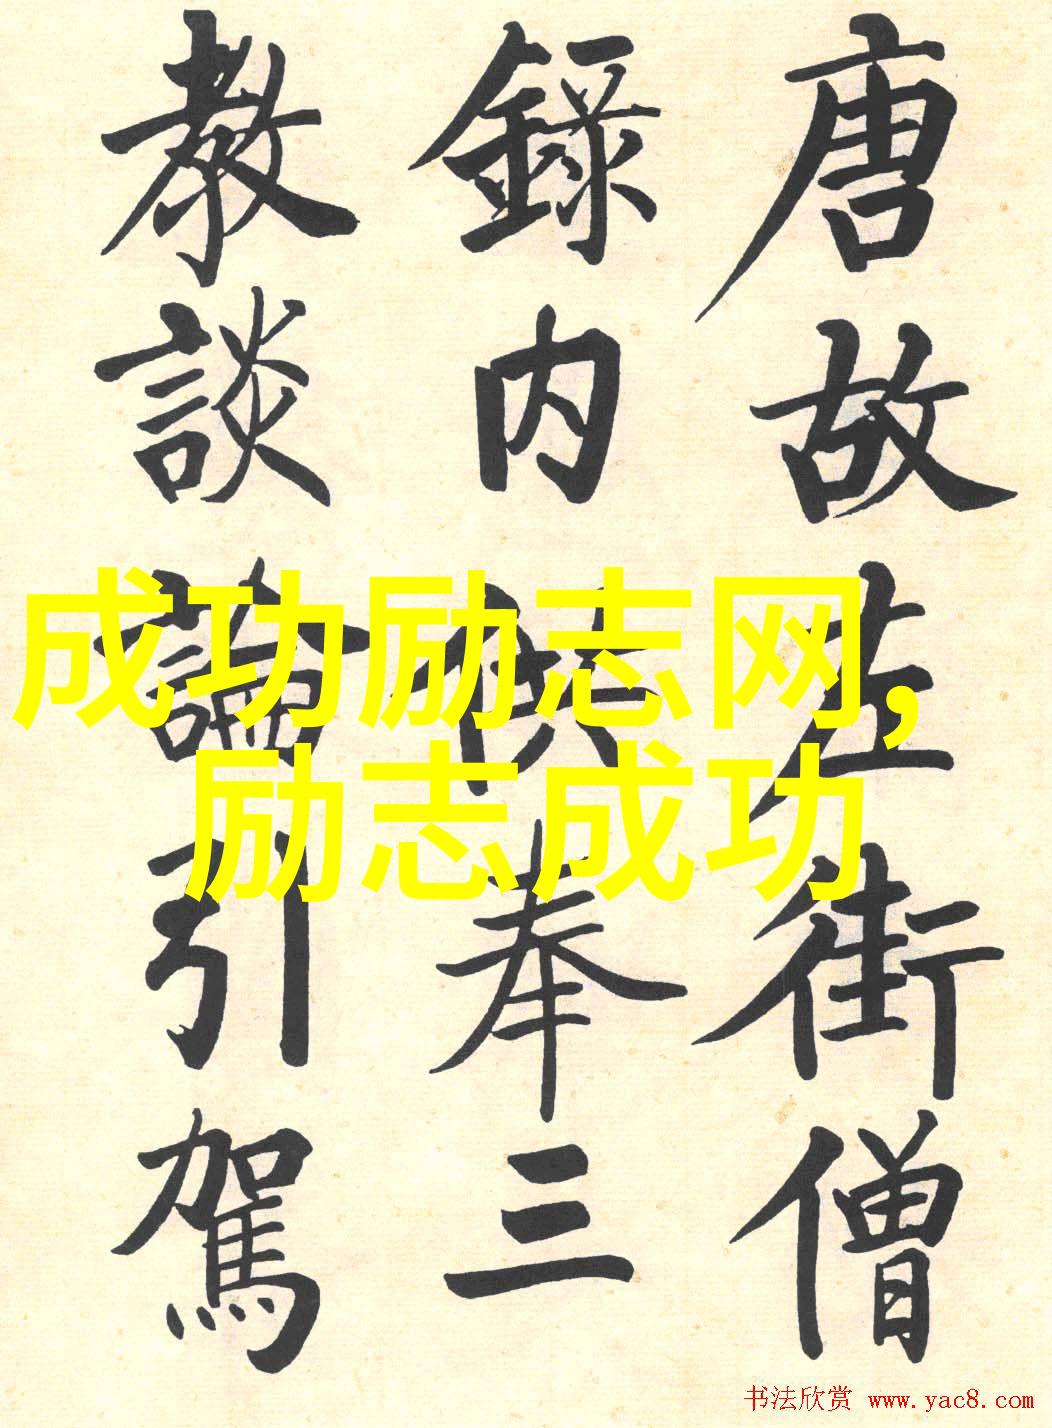 唐故左街僧
録内供奉三
教談論引駕
成功励志网,
励志成功
书法欣赏 www.yac8.com